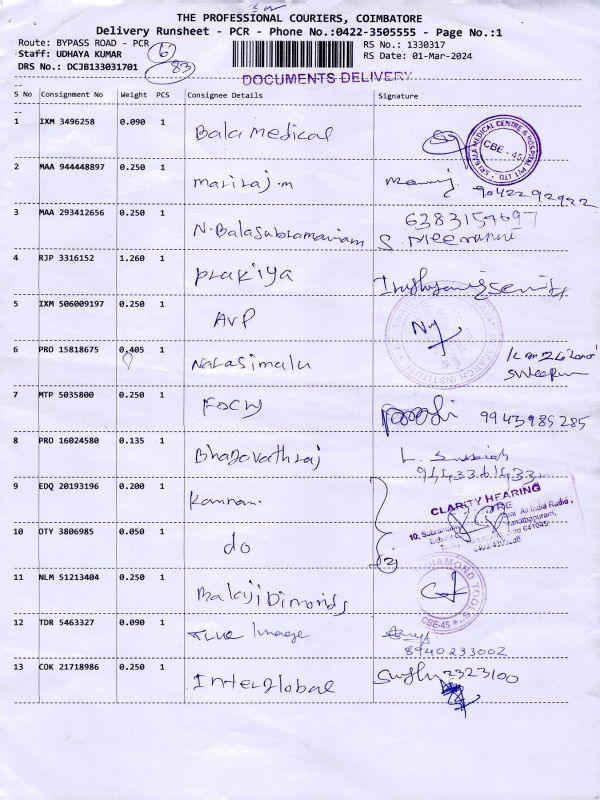 THE PROFESSIONAL COURIERS, COIMBATORE
Delivery Runsheet - PCR - Phone No.:0422-3505555 - Page No.:1
Route: BYPASS ROAD - PCR RS No.: 1330317
Staff: UDHAYA KUMAR RS Date: 01-Mar-2024
DRS No.: DCJB133031701 83
DOCUMENTS DELIVERY
S No Consignment No Weight PCS Consignee Details Signature
1 IXM 3496258 0.090 1 Bala Medical
SRI BALA MEDICAL CENTRE & HOSPITAL PVT. LTD. CBE - 45
2 MAA 944448897 0.250 1 mariraj.m 9042292922
3 MAA 293412656 0.250 1 N.Balasubramaniam
4 RJP 3316152 1.260 1 prakiya
5 IXM 506009197 0.250 1 AVP
RESEARCH INSTITUTE
6 PRO 15818675 0.405 1 Narasimalu
7 MTP 5035800 0.250 1 9943985285
8 PRO 16024580 0.135 1 Bhagavathraj
L. Subbiah
9443361433
9 EDQ 20193196 0.200 1 Kannan.
CLARITY HEARING
All India Radio,
10 OTY 3806985 0.050 1 do
11 NLM 51213404 0.250 1 Balaji Dimonds
DIAMOND TOOLS CBE-45
12 TDR 5463327 0.090 1 True Image
8940233002
13 COK 21718986 0.250 1 Interglobal 2323100